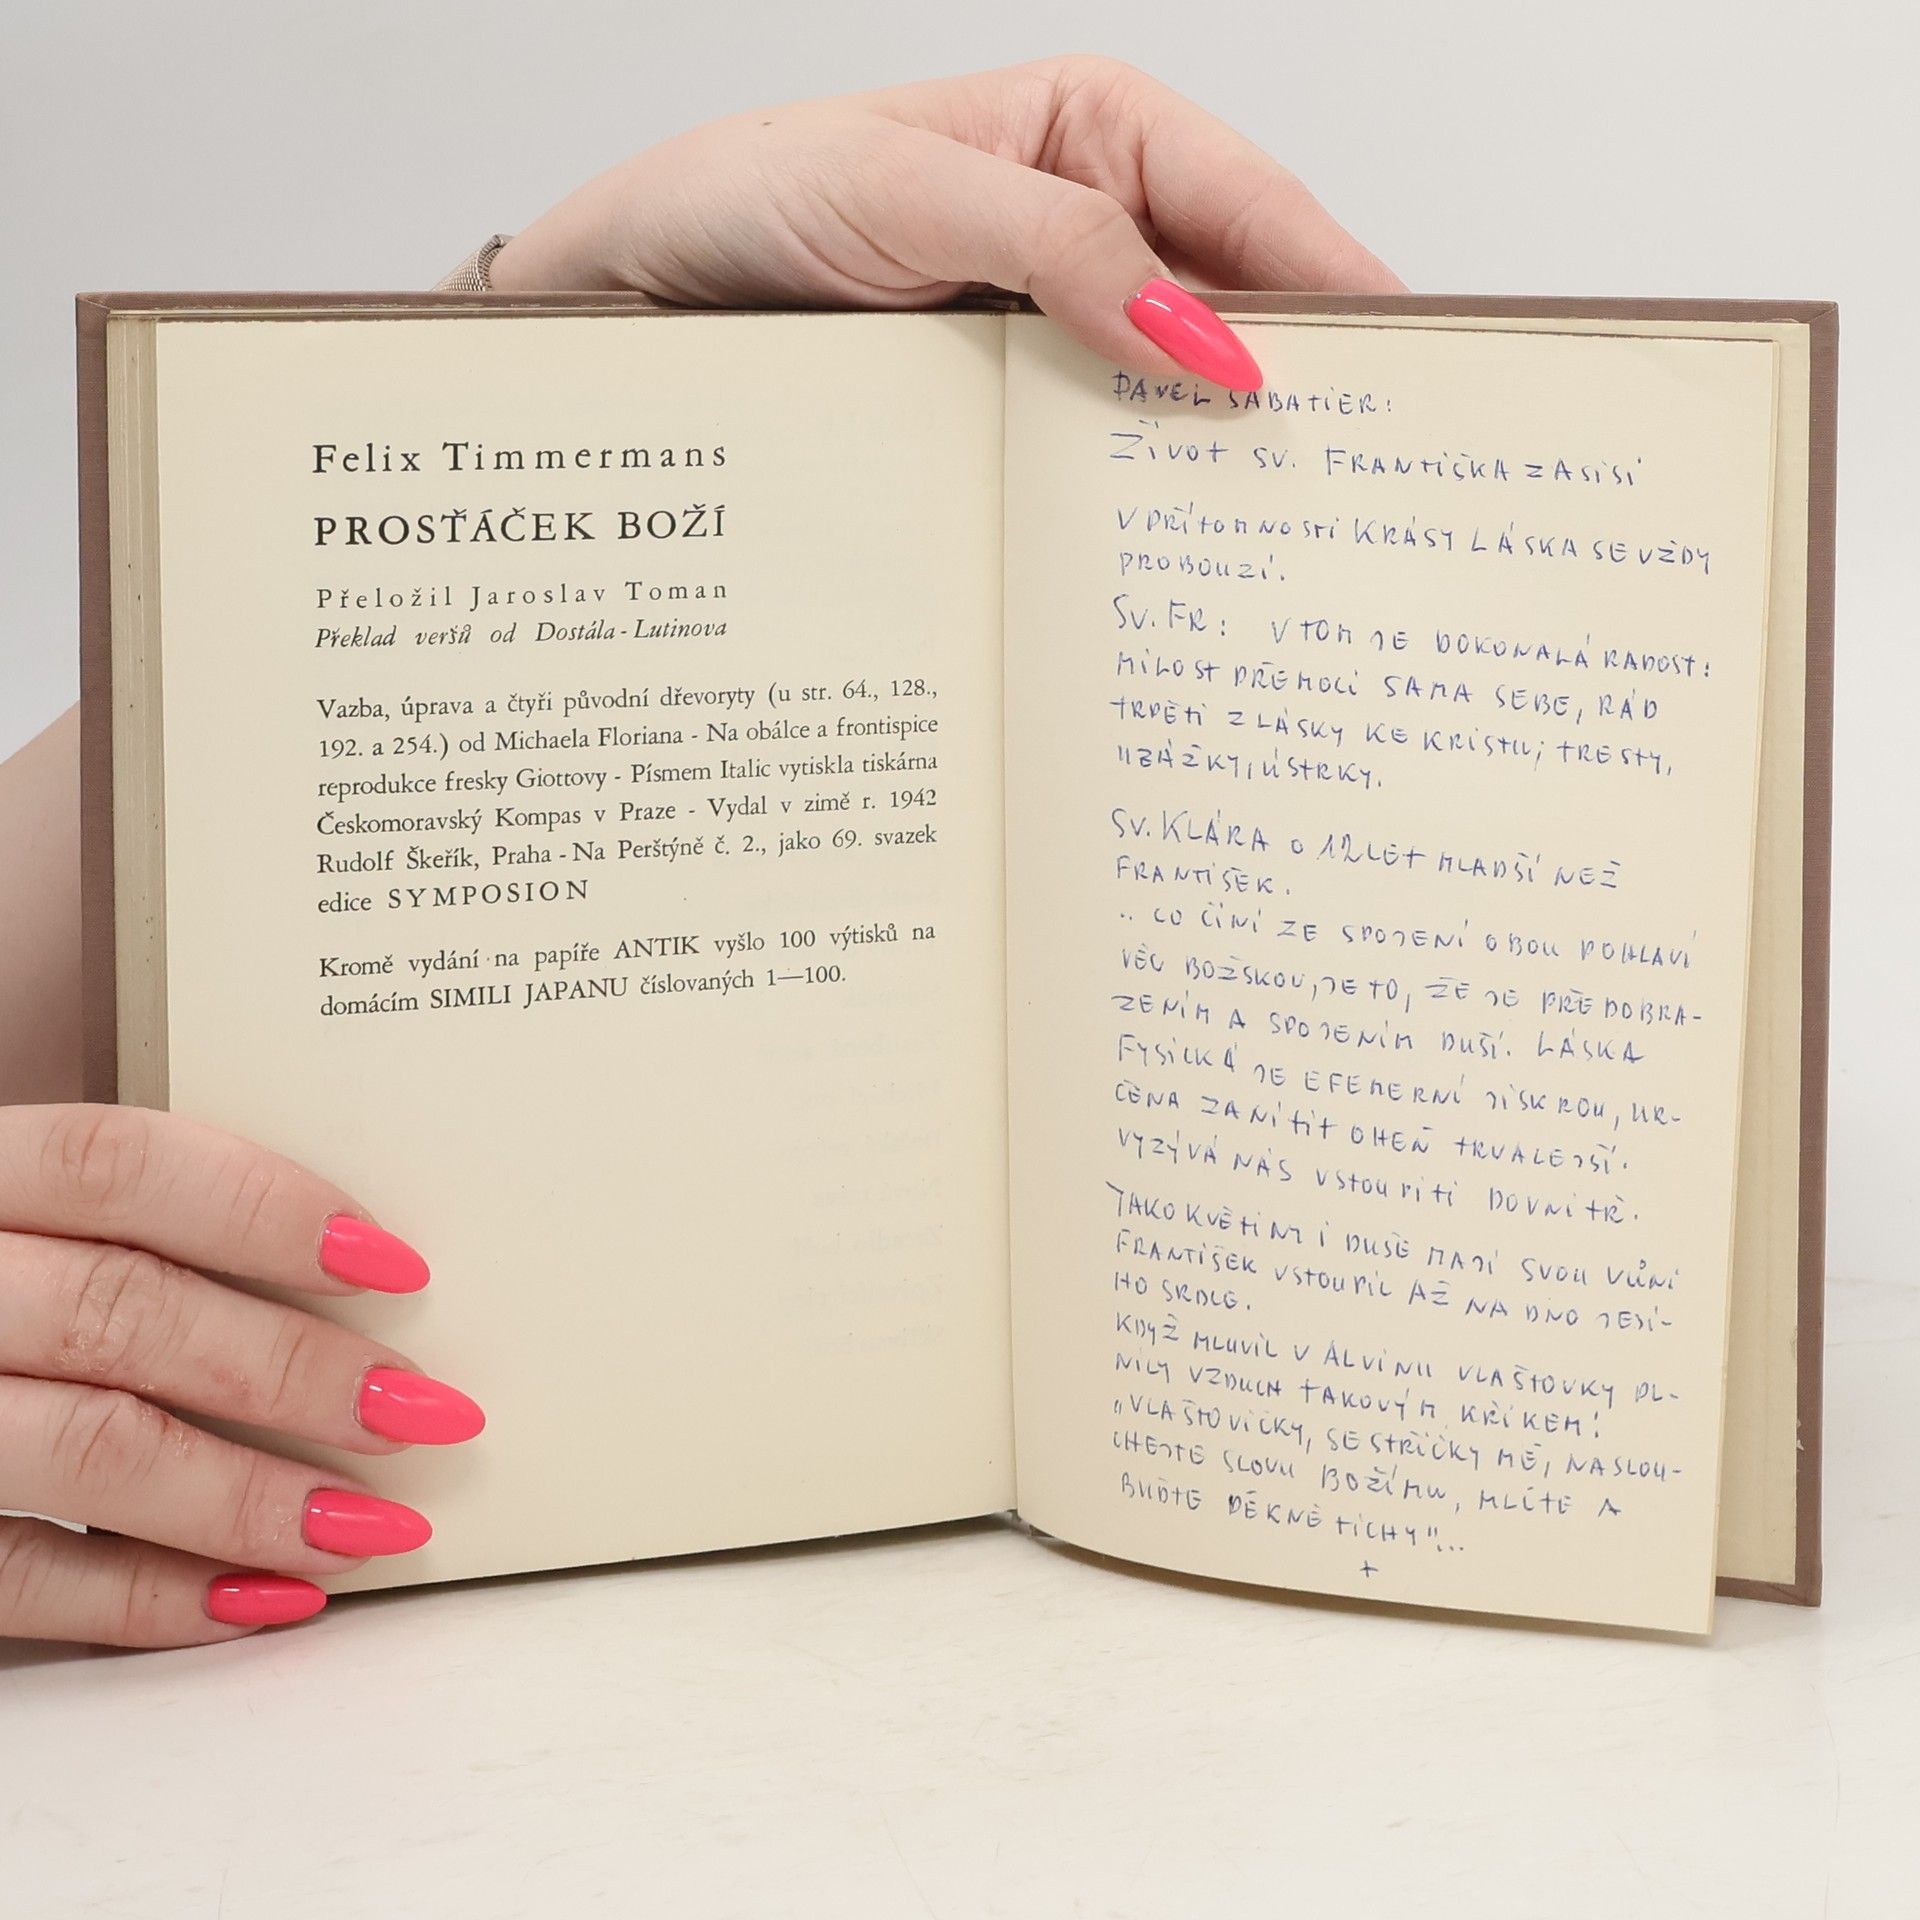 Felix Timmermans
PROSŤÁČEK BOŽÍ
Přeložil Jaroslav Toman
Překlad veršů od Dostála-Lutinova
Vazba, úprava a čtyři původní dřevoryty (u str. 64., 128.,
192. a 254.) od Michaela Floriana - Na obálce a frontispice
reprodukce fresky Giottovy - Písmem Italic vytiskla tiskárna
Českomoravský Kompas v Praze - Vydal v zimě r. 1942
Rudolf Škeřík, Praha - Na Perštýně č. 2., jako 69. svazek
edice SYMPOSION
Kromě vydání na papíře ANTIK vyšlo 100 výtisků na
domácím SIMILI JAPANU číslovaných 1—100.
PAVEL SABATIER:
ŽIVOT SV. FRANTIŠKA Z ASISI
V PŘÍTOMNOSTI KRÁSY LÁSKA SE VŽDY
PROBOUZÍ.
SV. FR: V TOM JE DOKONALÁ RADOST:
MILOST PŘEMOCI SAMA SEBE, RÁD
TRPĚTI Z LÁSKY KE KRISTU; TRESTY,
ÚSTRKY.
SV. KLÁRA O 12 LET MLADŠÍ NEŽ
FRANTIŠEK.
.. CO ČINÍ ZE SPOJENÍ OBOU POHLAVÍ
VĚC BOŽSKOU, JE TO, ŽE JE PŘEDOBRA-
ZENÍM A SPOJENÍM DUŠÍ. LÁSKA
FYSICKÁ JE EFEMERNÍ JISKROU, UR-
ČENA ZANÍTIT OHEŇ TRVALEJŠÍ.
VYZÝVÁ NÁS VSTOUPITI DOVNITŘ.
JAKO KVĚTINY I DUŠE MAJÍ SVOU VŮNI
FRANTIŠEK VSTOUPIL AŽ NA DNO JEJÍ-
HO SRDCE.
KDYŽ MLUVIL V ALVINU VLAŠTOVKY PL-
NILY VZDUCH TAKOVÝM KŘIKEM!
"VLAŠTOVIČKY, SESTŘIČKY MÉ, NASLOU-
CHEJTE SLOVU BOŽÍMU, MLČTE A
BUĎTE PĚKNĚ TICHY"...
+